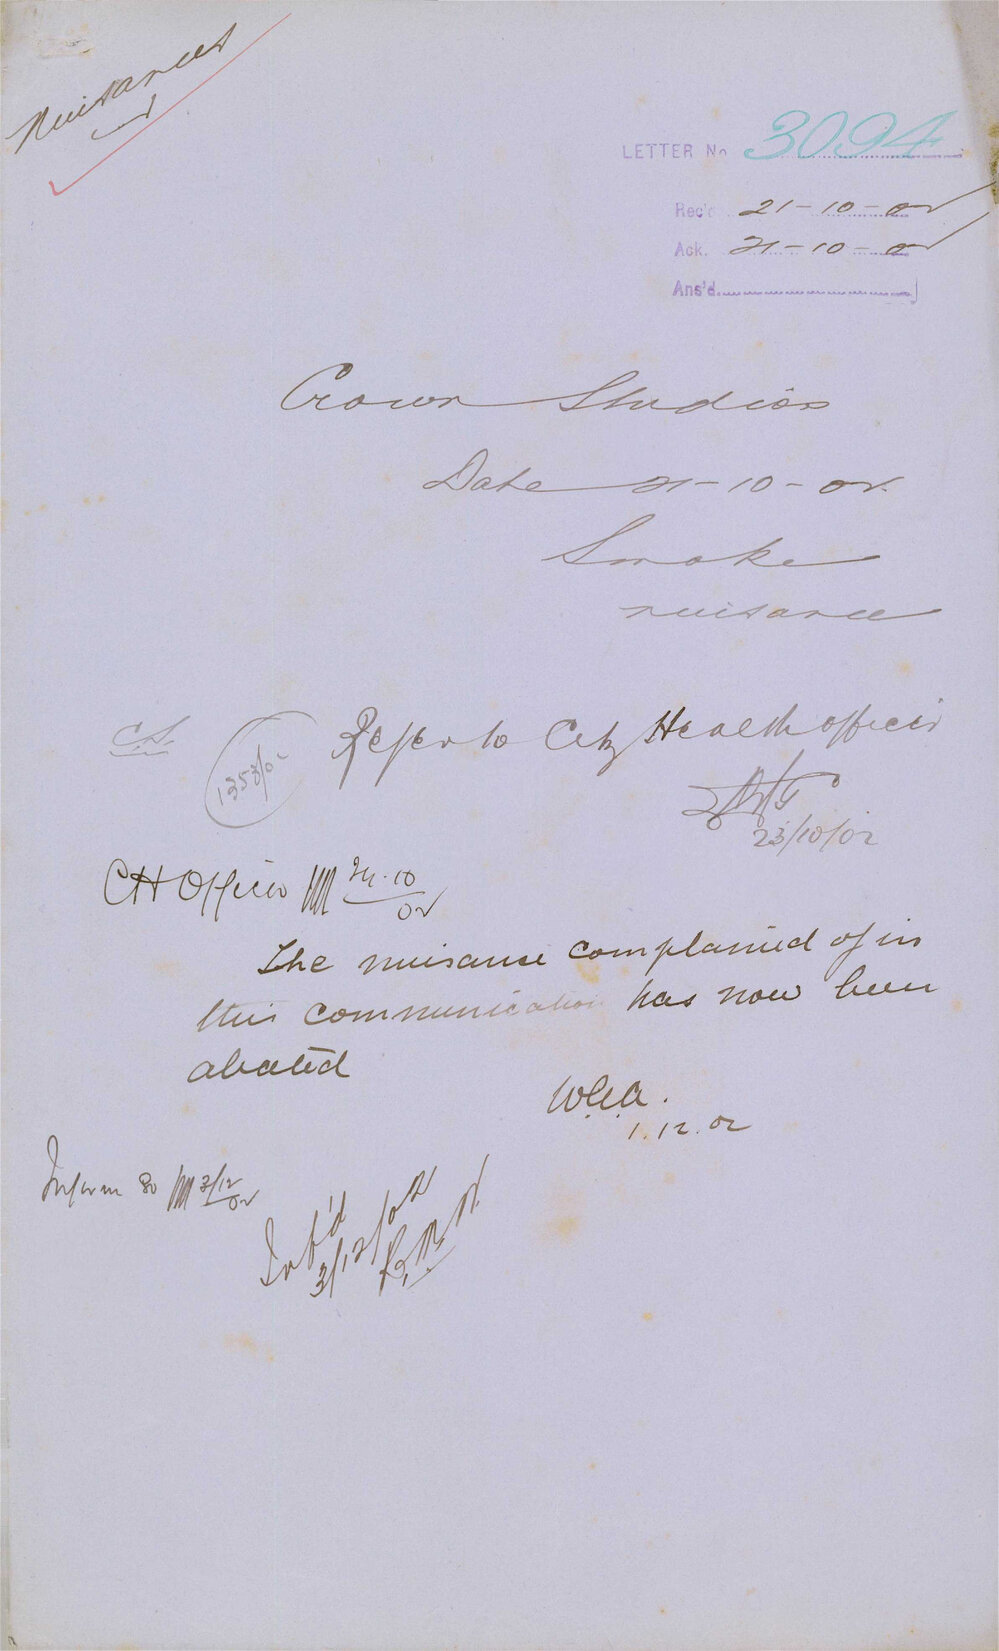 Nuisances
LETTER No 3094
Rec'd 21-10-02
Ack. 21-10-02
Ans'd
Crown Studios
Date 21-10-02
Smoke
nuisance
C.S.
1353/02
Refer to City Health officer
23/10/02
CH Officer 24.10/02
The nuisance complained of in
this communication has now been
abated
W.G.A.
1.12.02
Inform so 3/12/02
Inf'd
3/12/02